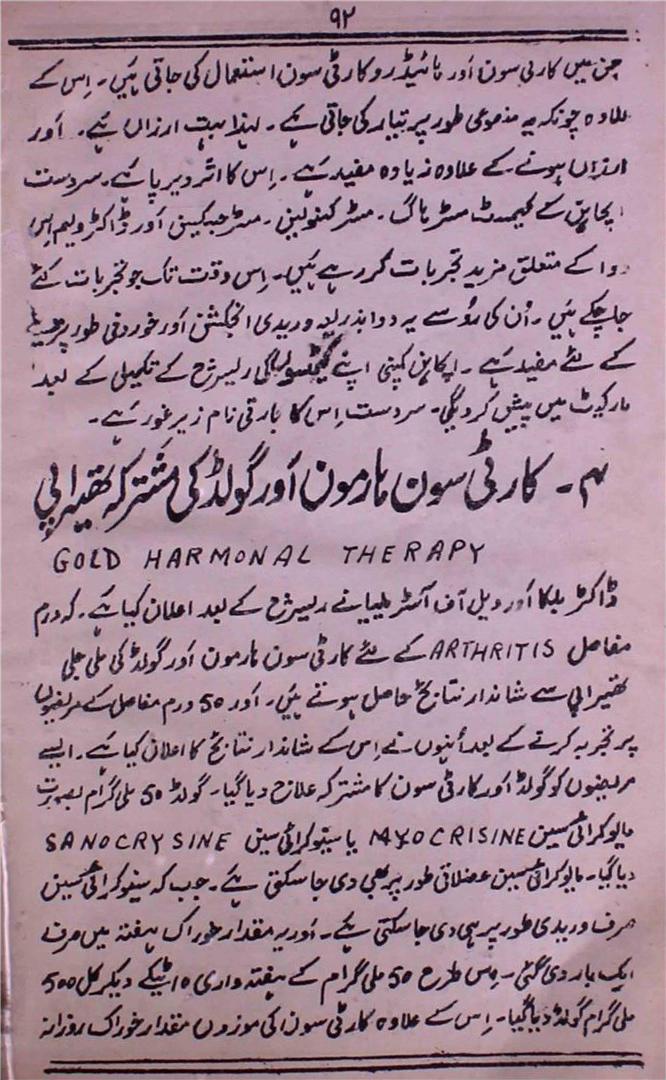 ۹۲
جن میں کارٹی سون اور ہائیڈرو کارٹی سون استعمال کی جاتی ہیں۔ اِس کے
علاوہ چونکہ یہ مصنوعی طور پر تیار کی جاتی ہے۔ لہٰذا بہت ارزاں ہے۔ اور
ارزاں ہونے کے علاوہ زیادہ مفید ہے۔ اِس کا اثر دیرپا ہے۔ سردست
اپجاہن کے کیمسٹ مسٹر ہاگ۔ مسٹر کنولین۔ مسٹر جیکسن اور ڈاکٹر ولیم اس
دوا کے متعلق مزید تجربات کر رہے ہیں۔ اِس وقت تک جو تجربات کئے
جا چکے ہیں۔ اُن کی رُو سے یہ دوا بذریعہ وریدی انجکشن اور خوردنی طور پر
کے لئے مفید ہے۔ اپجاہن کمپنی اپنے کی ریسرچ کے تکمیل کے بعد
مارکیٹ میں پیش کر دیگی۔ سردست اِس کا بارتی نام زیر غور ہے۔
۴۔ کارٹی سون ہارمون اور گولڈ کی مشترکہ تھیراپی
GOLD HARMONAL THERAPY
ڈاکٹر بلکا اور ویل آف آسٹریلیا نے ریسرچ کے بعد اعلان کیا ہے۔ کہ ورم
مفاصل ARTHRITIS کے لئے کارٹی سون ہارمون اور گولڈ کی ملی جلی
تھیراپی سے شاندار نتائج حاصل ہوتے ہیں۔ اور 50 ورم مفاصل کے مریضوں
پر تجربہ کرنے کے بعد اُنہوں نے اِس کے شاندار نتائج کا اعلان کیا ہے۔ ایسے
مریضوں کو گولڈ اور کارٹی سون کا مشترکہ علاج دیا گیا۔ گولڈ 50 ملی گرام بصورت
مایوکرائی سین MYOCRISINE یا سینوکرائی سین SANOCRYSINE
دیا گیا۔ مایوکرائی سین عضلاتی طور پر بھی دی جا سکتی ہے۔ جب کہ سینوکرائی سین
صرف وریدی طور پر ہی دی جا سکتی ہے۔ اور یہ مقدار خوراک ہفتہ میں صرف
ایک بار دی گئی۔ اِس طرح 50 ملی گرام کے ہفتہ واری 10 ٹیکے دیکر کل 500
ملی گرام گولڈ دیا گیا۔ اِس کے علاوہ کارٹی سون کی موزوں مقدار خوراک روزانہ